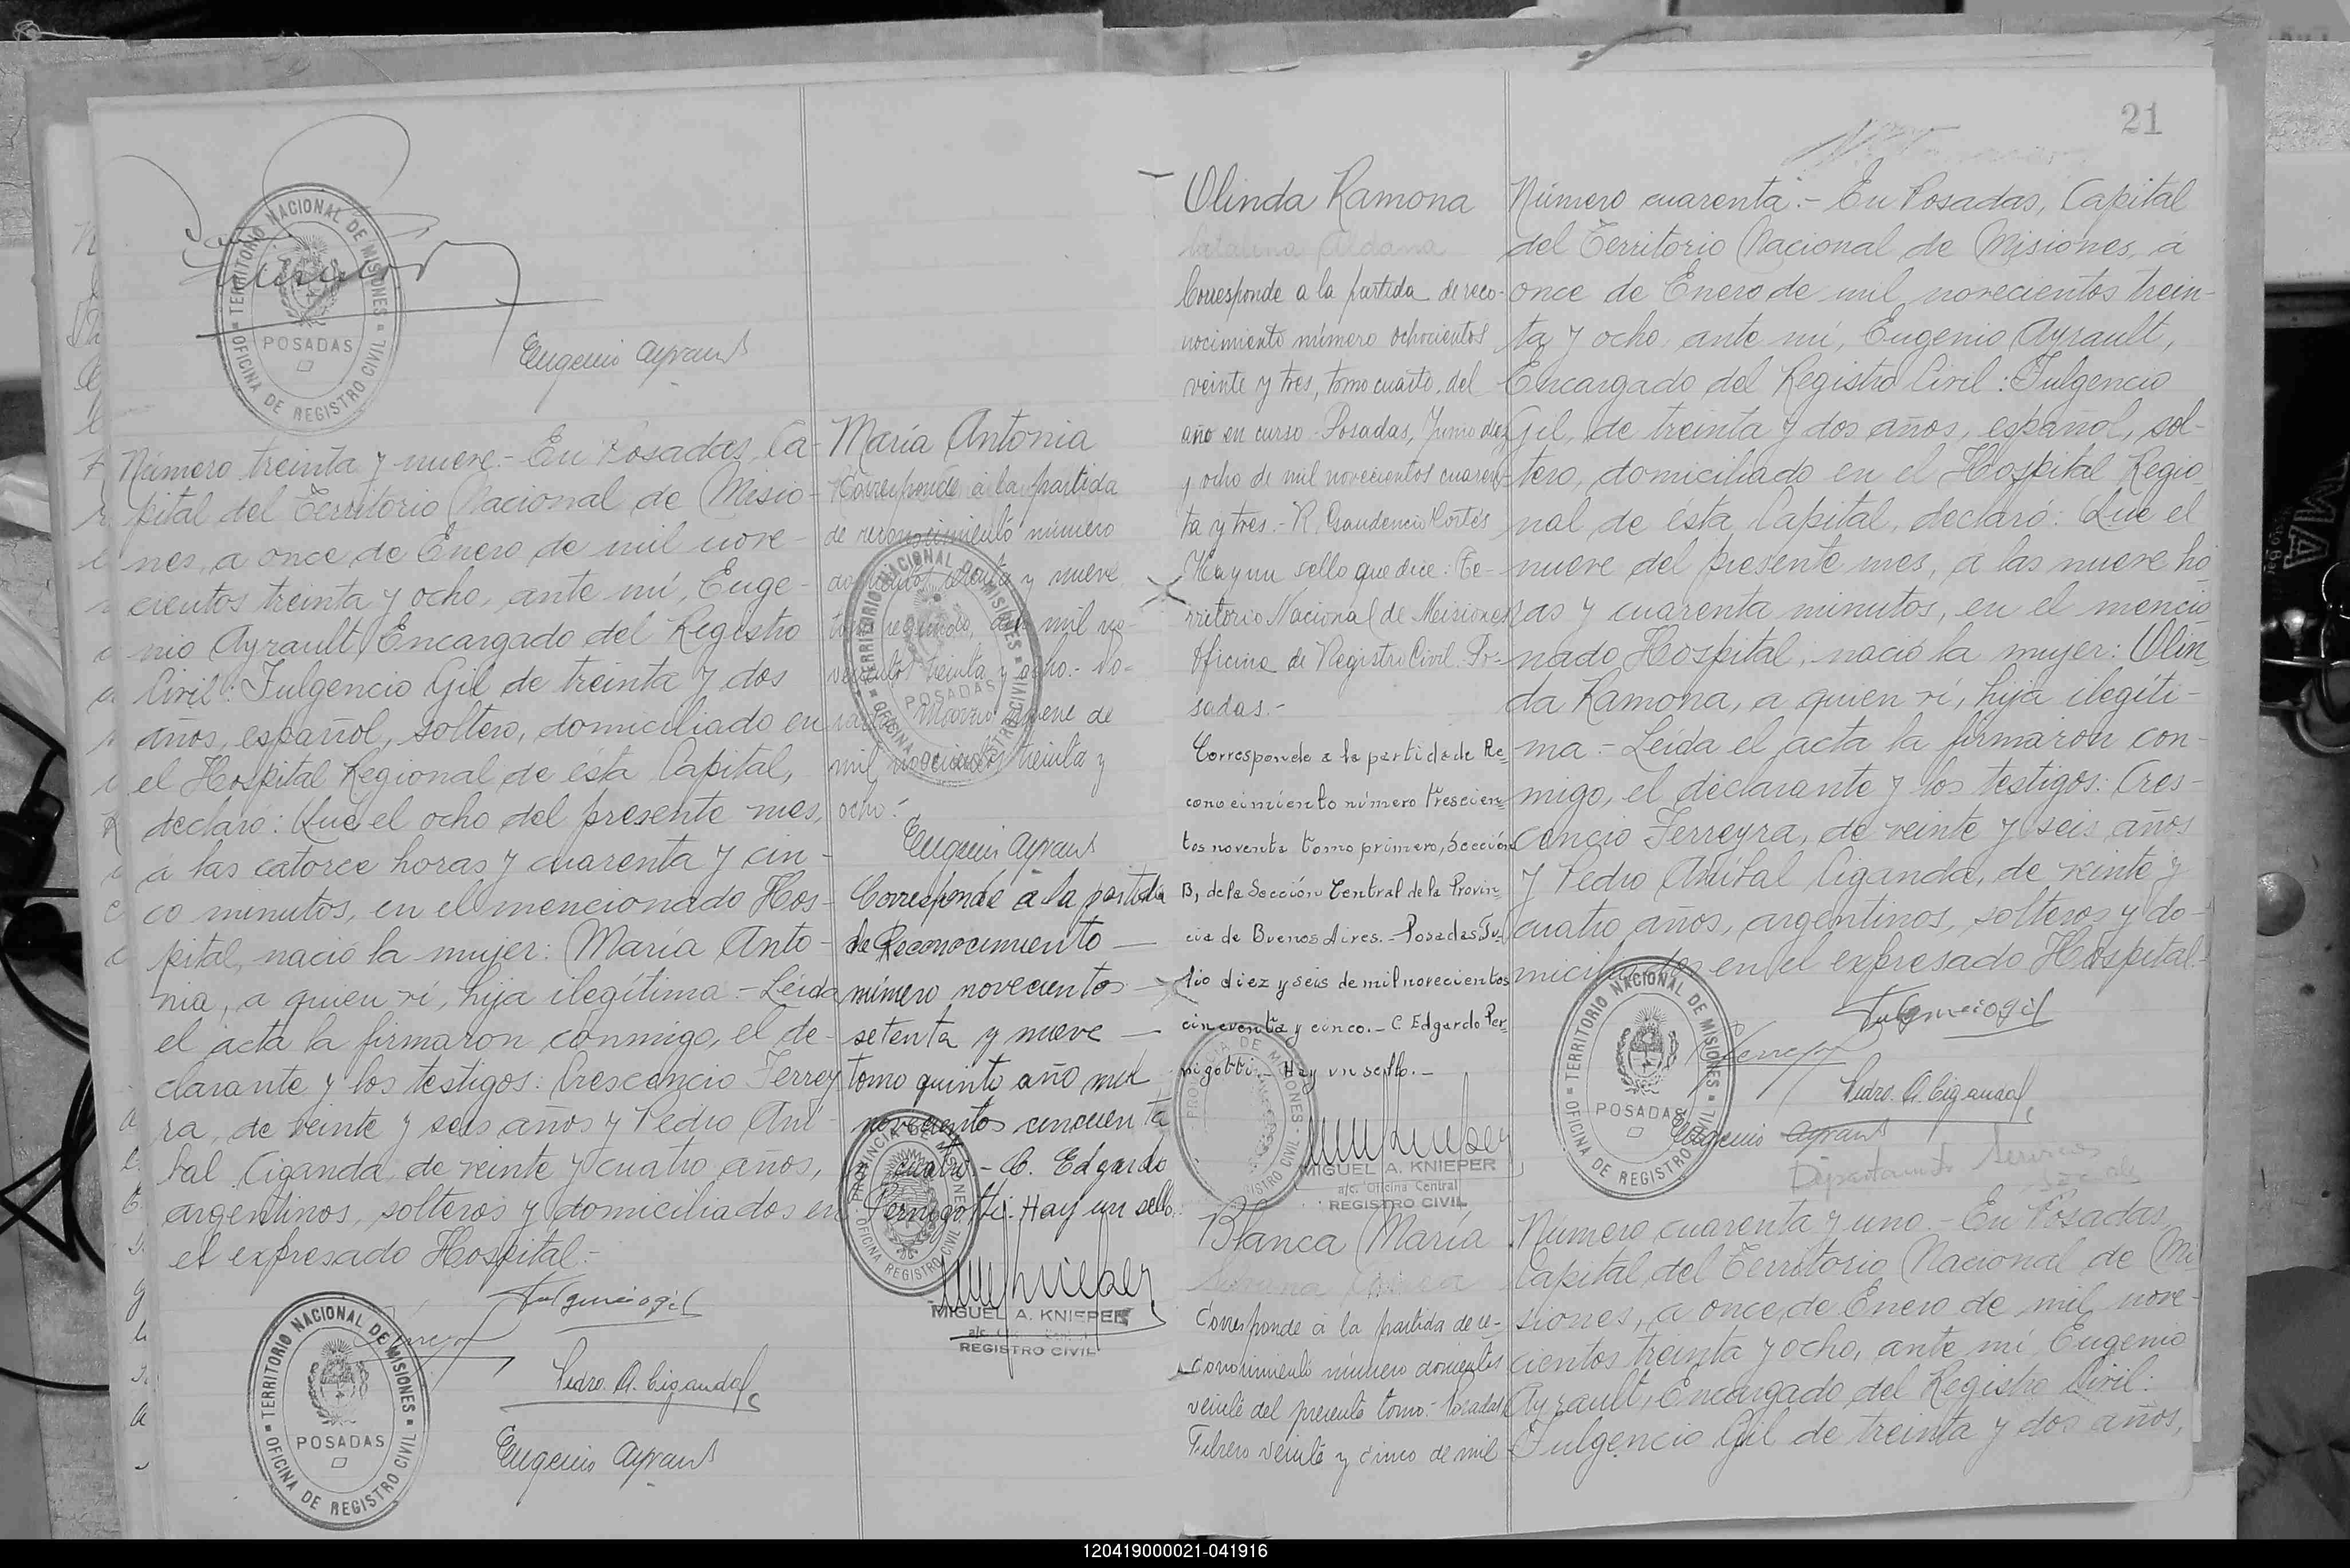 Eugenio Ayrault
Número treinta y nueve.- En Posadas, Ca-
pital del Territorio Nacional de Misio-
nes, a once de Enero de mil nove-
cientos treinta y ocho, ante mí, Euge-
nio Ayrault, Encargado del Registro
Civil: Fulgencio Gil de treinta y dos
años, español, soltero, domiciliado en
el Hospital Regional de ésta Capital,
declaró: Que el ocho del presente mes,
á las catorce horas y cuarenta y cin-
co minutos, en el mencionado Hos-
pital, nació la mujer: María Anto-
nia, a quien ví, hija ilegítima.- Leída
el acta la firmaron conmigo, el de-
clarante y los testigos: Crescencio Ferrey
ra, de veinte y seis años y Pedro Aní-
bal Ciganda, de veinte y cuatro años,
argentinos, solteros y domiciliados en
el expresado Hospital.-
Fulgencio Gil
Pedro A. Ciganda
Eugenio Ayrault
TERRITORIO NACIONAL DE MISIONES
POSADAS
OFICINA DE REGISTRO CIVIL
María Antonia
Corresponde á la partida
de reconocimiento número
y nueve
tomo segundo, de mil no-
vecientos treinta y ocho.- Po-
sadas, Marzo nueve de
mil novecientos treinta y
ocho.-
Eugenio Ayrault
Corresponde a la partida
de Reconocimiento
número novecientos
setenta y nueve
tomo quinto año mil
novecientos cincuenta
y cuatro - C. Edgardo
Pernigotti.- Hay un sello.
MIGUEL A. KNIEPER
a/c. Oficina Central
REGISTRO CIVIL
21
Olinda Ramona
Catalina Aldana
Corresponde a la partida de reco-
nocimiento número ochocientos
veinte y tres, tomo cuarto, del
año en curso - Posadas, Junio diez
y ocho de mil novecientos cuaren-
ta y tres.- R. Gaudencio Cortés
Hay un sello que dice: Te-
rritorio Nacional de Misiones
Oficina de Registro Civil. Po-
sadas.-
Corresponde a la partida de Re-
conocimiento número trescien-
tos noventa tomo primero, Sección
B, de la Sección Central de la Provin-
cia de Buenos Aires.- Posadas Ju-
lio diez y seis de mil novecientos
cincuenta y cinco.- C. Edgardo Per-
nigotti.- Hay un sello.-
MIGUEL A. KNIEPER
a/c. Oficina Central
REGISTRO CIVIL
Número cuarenta.- En Posadas, Capital
del Territorio Nacional de Misiones, á
once de Enero de mil novecientos trein-
ta y ocho, ante mí, Eugenio Ayrault,
Encargado del Registro Civil: Fulgencio
Gil, de treinta y dos años, español, sol-
tero, domiciliado en el Hospital Regio
nal de ésta Capital, declaró: Que el
nueve del presente mes, á las nueve ho
ras y cuarenta minutos, en el mencio
nado Hospital, nació la mujer: Olin-
da Ramona, a quien ví, hija ilegíti-
ma.- Leída el acta la firmaron con-
migo, el declarante y los testigos: Cres-
cencio Ferreyra, de veinte y seis años
y Pedro Aníbal Ciganda, de veinte y
cuatro años, argentinos, solteros y do-
miciliados en el expresado Hospital.-
Fulgencio Gil
Pedro A. Ciganda
Eugenio Ayrault
Departamento Servicios
TERRITORIO NACIONAL DE MISIONES
POSADAS
OFICINA DE REGISTRO CIVIL
Blanca María
Corresponde á la partida de re-
conocimiento número doscientos
veinte del presente tomo.- Posadas,
Febrero veinte y cinco de mil
Número cuarenta y uno.- En Posadas,
Capital del Territorio Nacional de Mi
siones, a once de Enero de mil nove-
cientos treinta y ocho, ante mí, Eugenio
Ayrault, Encargado del Registro Civil:
Fulgencio Gil de treinta y dos años,
120419000021-041916